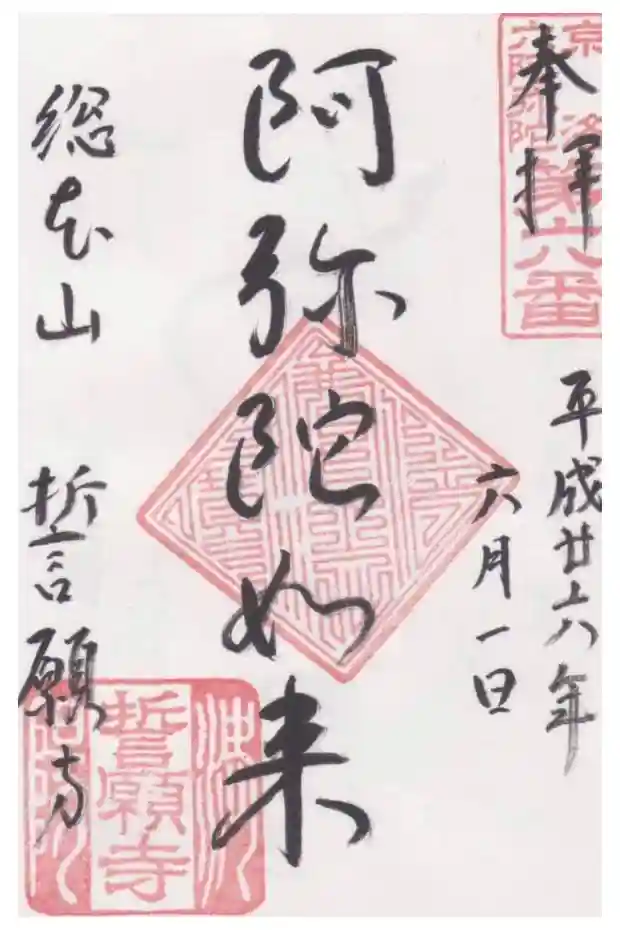 奉拝
京洛
六阿弥陀
第六番
平成廿六年
六月一日
阿弥陀如来
総本山 誓願寺
誓願寺